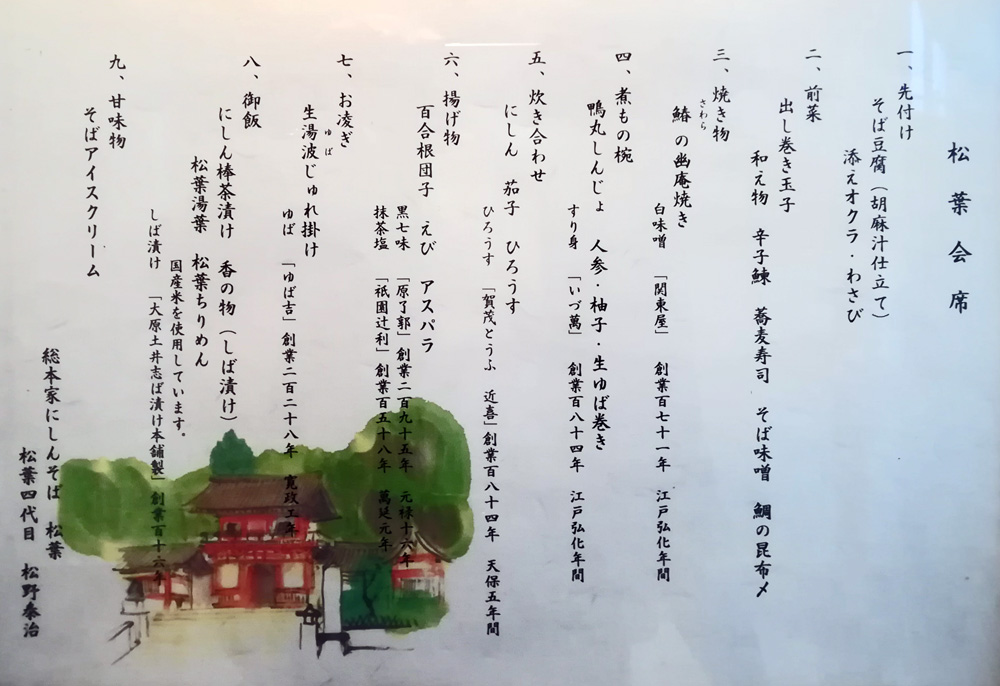 松葉会席
一、先付け
そば豆腐（胡麻汁仕立て）
添えオクラ・わさび
二、前菜
出し巻き玉子
和え物　辛子鰊　蕎麦寿司　そば味噌　鯛の昆布〆
三、焼き物
鰆の幽庵焼き
さわら
白味噌　「関東屋」　創業百七十一年　江戸弘化年間
四、煮もの椀
鴨丸しんじょ　人参・柚子・生ゆば巻き
すり身　「いづ萬」　創業百八十四年　江戸弘化年間
五、炊き合わせ
にしん　茄子　ひろうす
ひろうす　「賀茂とうふ　近喜」創業百八十四年　天保五年間
六、揚げ物
百合根団子　えび　アスパラ
黒七味　「原了郭」創業二百九十五年　元禄十六年
抹茶塩　「祇園辻利」創業百五十八年　萬延元年
七、お凌ぎ
生湯波じゅれ掛け
ゆば
ゆば　「ゆば吉」創業二百二十八年　寛政二年
八、御飯
にしん棒茶漬け　香の物（しば漬け）
松葉湯葉　松葉ちりめん
国産米を使用しています。
しば漬け　「大原土井志ば漬け本舗製」創業百十六年
九、甘味物
そばアイスクリーム
総本家にしんそば　松葉
松葉四代目　松野泰治